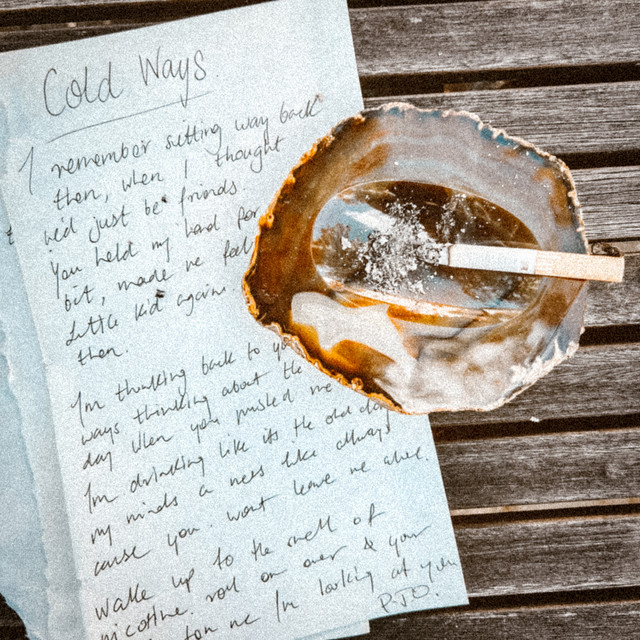 Cold Ways.
I remember sitting way back
then, when I thought
we'd just be friends.
You held my hand for
bit, made me feel
little kid again
then.
I'm thinking back to
ways thinking about the
day when you pushed me
I'm drinking like its the old days
my minds a mess like always
cause you wont leave me alone.
Wake up to the smell of
nicotine. roll on over & your
on me I'm looking at you
P.J.O.